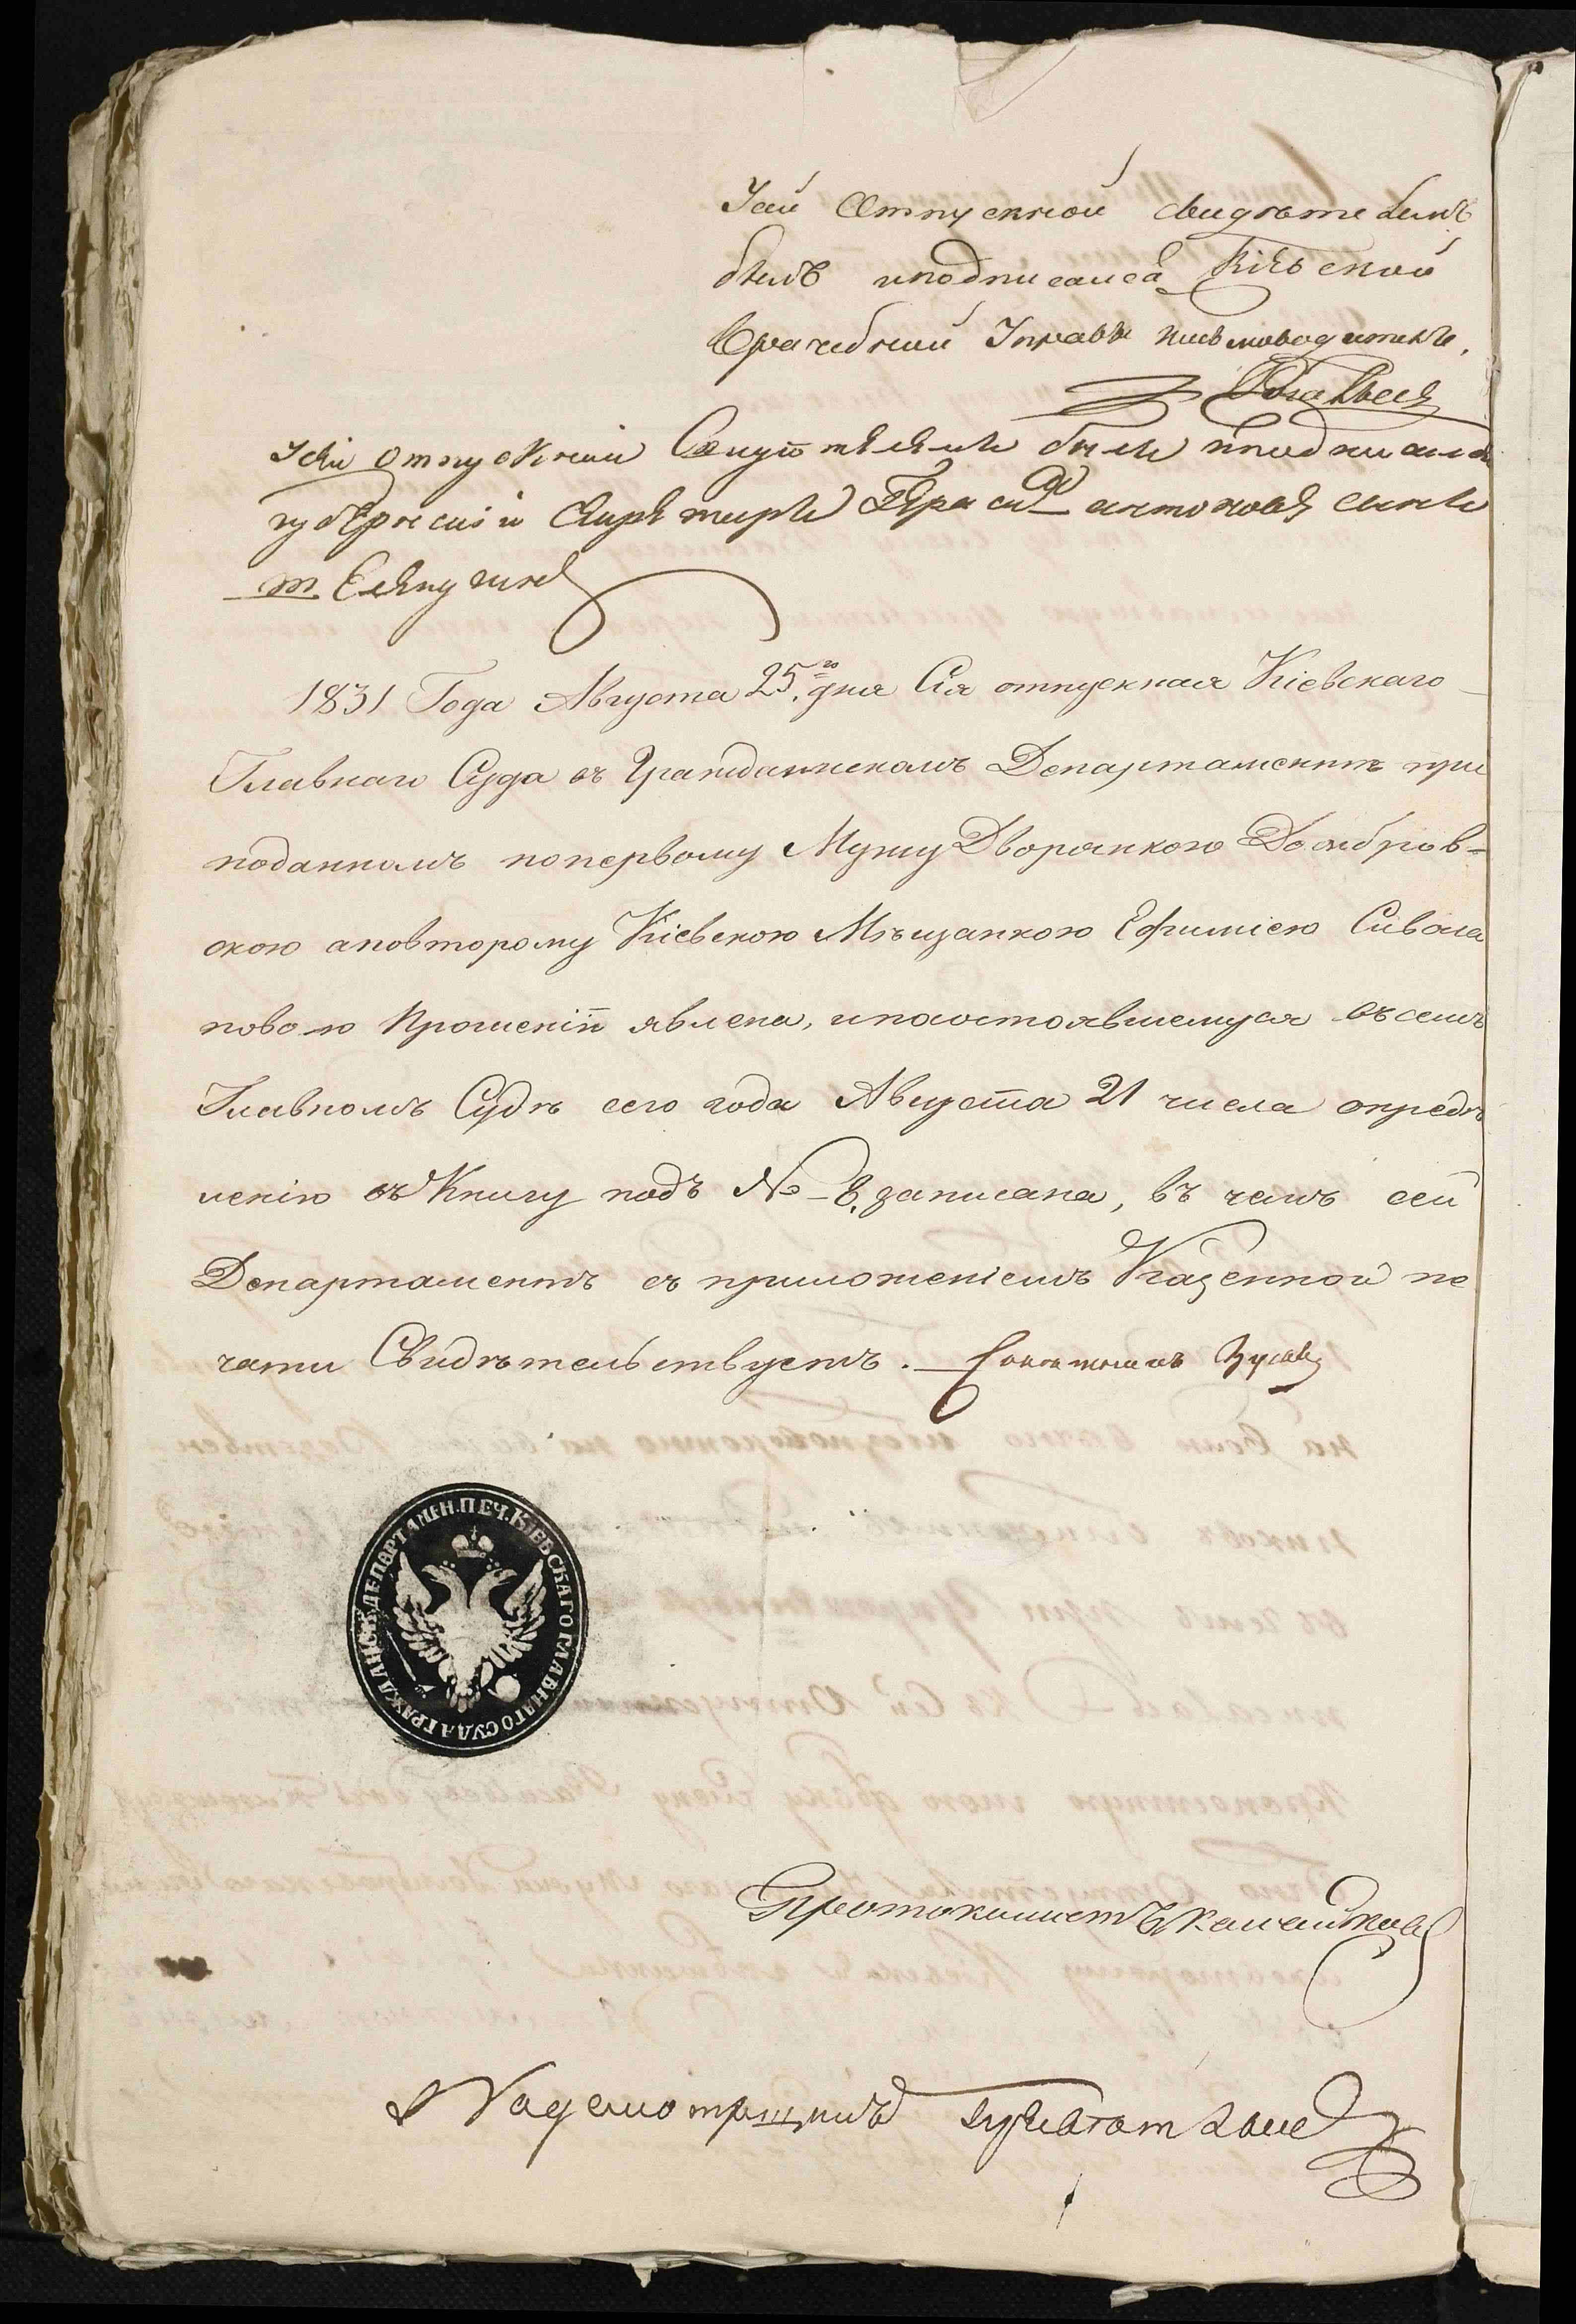 Усей Отпускной свидѣтелемъ
былъ иподписался Кіевской
Врачебной Управы письмоводитель
Усей отпускной былъ иподписался
губернскій секретарь Антоновъ сынъ
1831 Года Августа 25го дня Сія отпускная Кіевскаго
Главнаго Суда въ Гражданскомъ Департаментѣ при
поданномъ попервому Мужу Дворянкою Домбров-
скою аповторому Кіевскою Мѣщанкою Ефиміею Сивола
повою Прошеніи явлена, ипосостоявшемуся въ семъ
Главномъ Судѣ сего года Августа 21 числа опредѣ
ленію въ Книгу подъ № 8. записана, въ чемъ сей
Департаментъ съ приложеніемъ Казенной пе
чати Свидѣтельствуетъ.
ГРАЖДАНСК. ДЕПАРТАМЕН. ПЕЧ. КІЕВСКАГО ГЛАВНАГО СУДА
Протоколистъ
Надсмотрщикъ